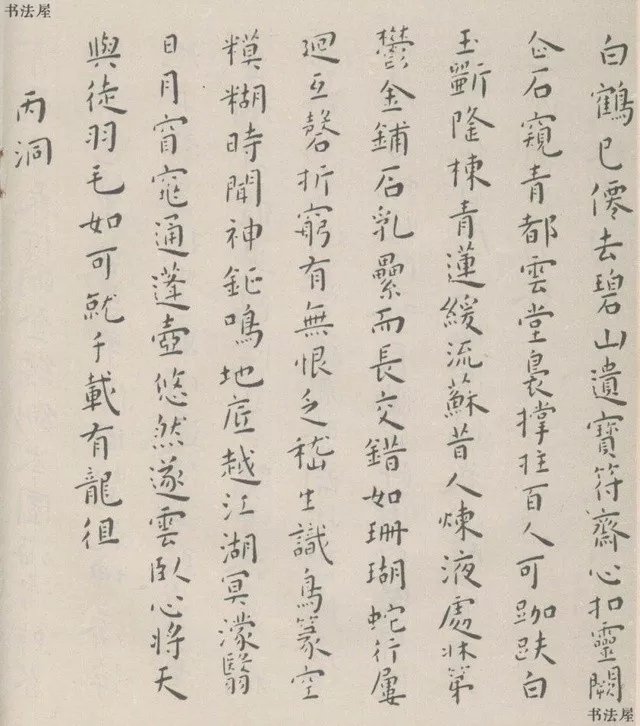 书法屋
白鶴已僊去碧山遺寶符齋心扣靈闕
企石窺青都雲堂裊撐拄百人可跏趺白
玉斵隆棟青蓮緩流蘇昔人煉液處牀第
鬱金鋪石乳纍而長交錯如珊瑚蛇行屢
迴互磬折窮有無恨乏嵇生識鳥篆空
糢糊時聞神鉦鳴地底越江湖冥濛翳
日月窅窱通蓬壺悠然遂雲臥心將天
與徒羽毛如可就千載有龍徂
丙洞
书法屋